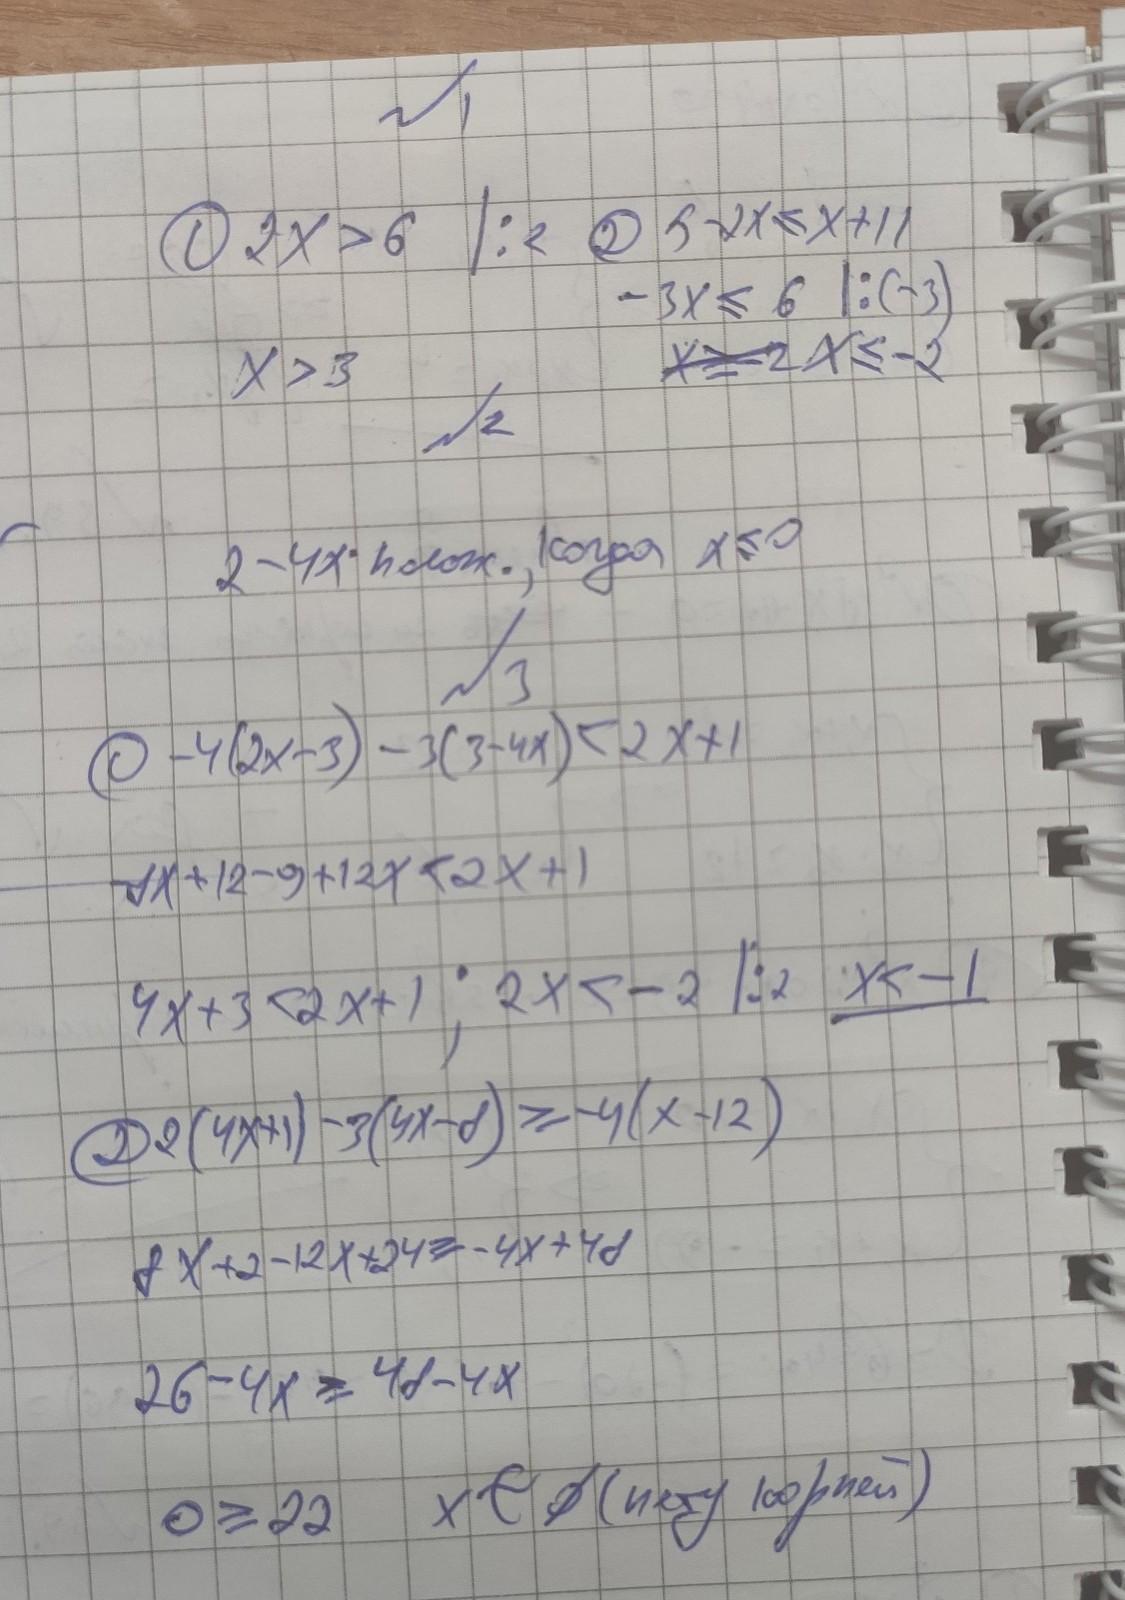 №1
① 2x > 6 |:2 ② 5-2x ≤ x+11
-3x ≤ 6 |:(-3)
x > 3 x ≥ -2 x ≤ -2
№2
2-4x полож., когда x ≤ 0
№3
① -4(2x-3) -3(3-4x) < 2x+1
-8x+12-9+12x < 2x+1
4x+3 < 2x+1 ; 2x < -2 |:2 x < -1
② 2(4x+1) -3(4x-8) ≥ -4(x-12)
8x+2-12x+24 ≥ -4x+48
26-4x ≥ 48-4x
0 ≥ 22 x ∈ ∅ (нету корней)